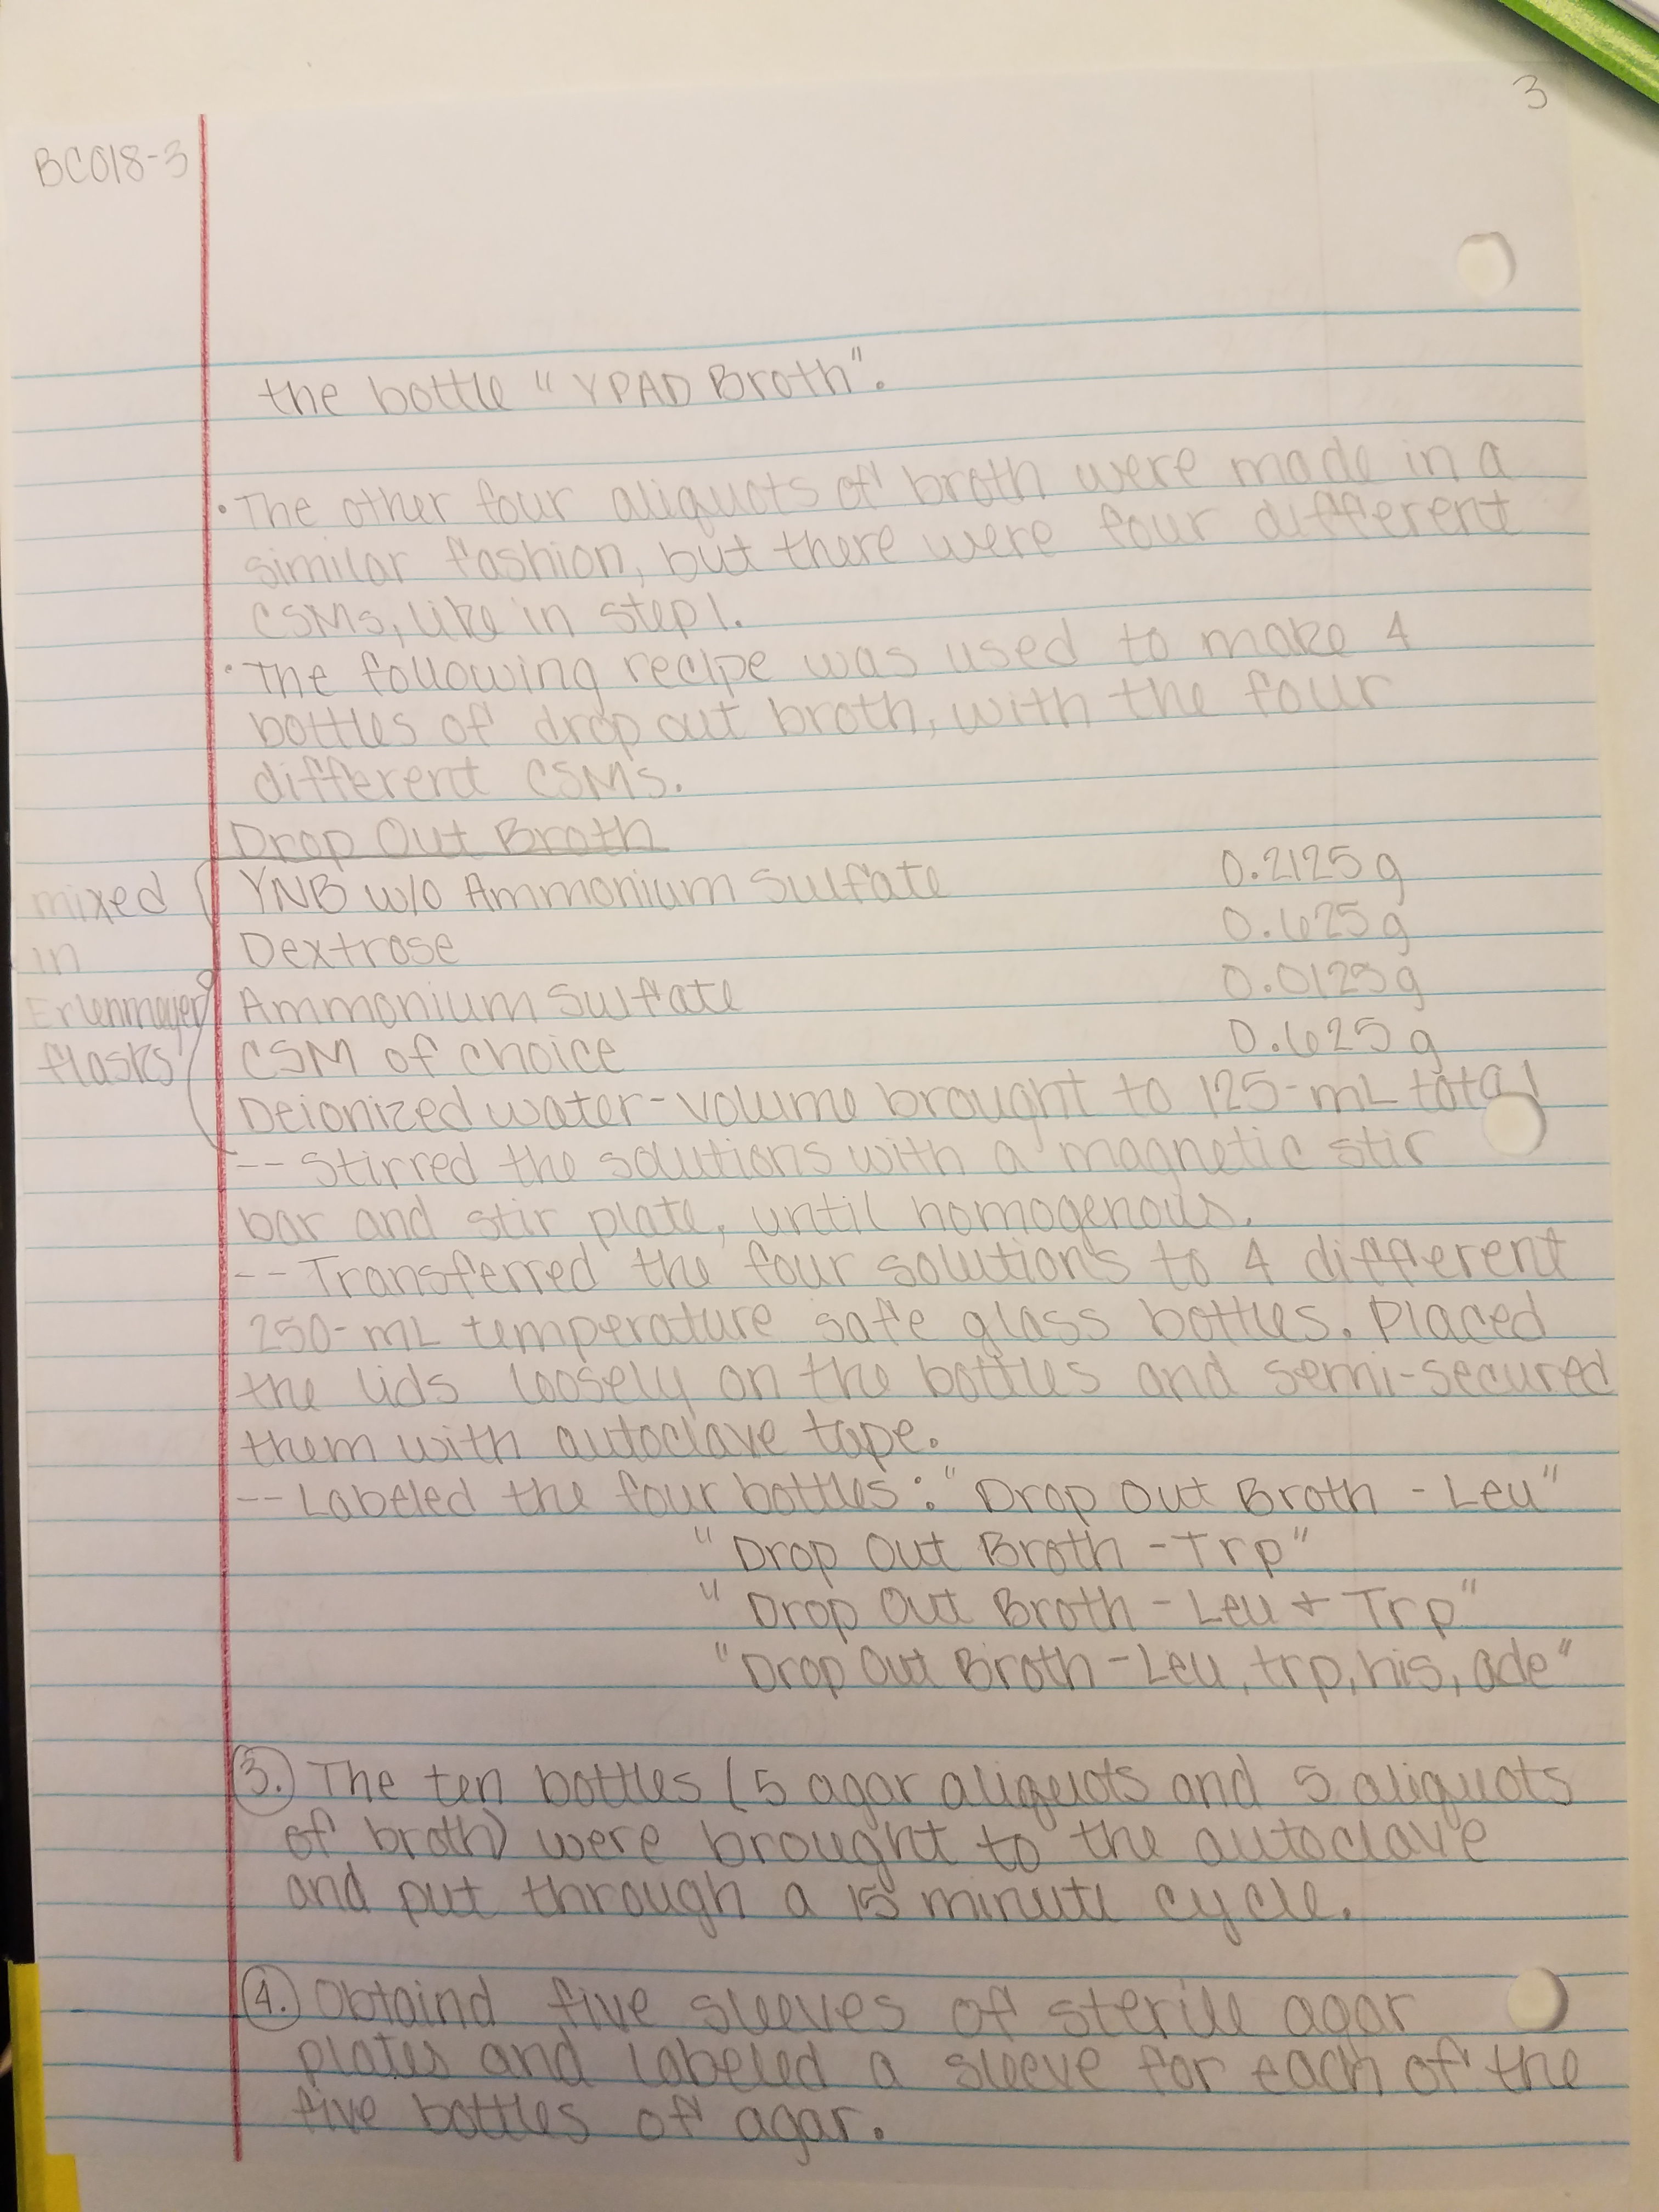 3
BC018-3
the bottle "YPAD Broth".
• The other four aliquots of broth were made in a
similar fashion, but there were four different
CSMs, like in step 1.
• The following recipe was used to make 4
bottles of drop out broth, with the four
different CSMs.
Drop Out Broth
YNB w/o Ammonium Sulfate 0.2125 g
Dextrose 0.625 g
Ammonium Sulfate 0.0125 g
CSM of choice 0.625 g
Deionized water - volume brought to 125-mL total
mixed
in
Erlenmayer
flasks
-- Stirred the solutions with a magnetic stir
bar and stir plate, until homogenous.
-- Transferred the four solutions to 4 different
250-mL temperature safe glass bottles. Placed
the lids loosely on the bottles and semi-secured
them with autoclave tape.
-- Labeled the four bottles: "Drop Out Broth - Leu"
"Drop Out Broth - Trp"
"Drop Out Broth - Leu + Trp"
"Drop Out Broth - Leu, trp, his, ade"
3. The ten bottles (5 agar aliquots and 5 aliquots
of broth) were brought to the autoclave
and put through a 15 minute cycle.
4. Obtaind five sleeves of sterile agar
plates and labeled a sleeve for each of the
five bottles of agar.